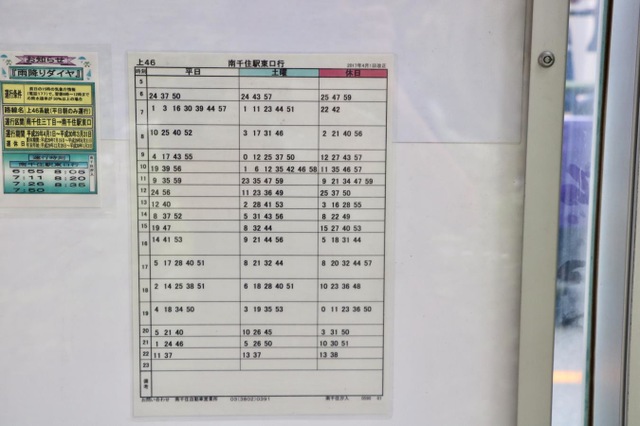 お知らせ
『雨降りダイヤ』
運行条件
路線名 上46系統(平日朝のみ運行)
運行区間 南千住三丁目→南千住駅東口
運行期間 平成29年4月1日～平成30年3月31日
運休日
南千住駅東口行
6:55 8:05
7:11 8:20
7:25 8:35
7:50
上46 南千住駅東口行 2017年4月1日改正
時刻 平日 土曜 休日
5
6 24 37 50 24 43 57 25 47 59
7 1 3 16 30 39 44 57 1 11 23 44 51 22 42
8 10 25 40 52 3 17 31 46 2 21 40 56
9 4 17 43 55 0 12 25 37 50 12 27 43 57
10 19 39 56 1 6 12 35 42 46 58 11 35 46 57
11 9 35 59 23 35 47 59 9 21 34 47 59
12 24 56 11 23 36 49 25 37 50
13 12 40 2 28 41 53 3 16 28 55
14 8 37 52 5 31 43 56 8 22 49
15 19 47 8 32 44 15 27 40 53
16 14 41 53 9 21 44 56 5 18 31 44
17 5 17 28 40 51 8 21 32 44 8 20 32 44 57
18 2 14 25 38 51 6 18 28 40 51 10 23 36 48
19 4 18 34 50 3 19 35 53 0 11 23 36 50
20 5 21 40 10 26 45 3 31 50
21 1 24 46 5 26 50 10 30 51
22 11 37 13 37 13 38
23
備考
お問い合わせ 南千住自動車営業所 03(3802)0391 南千住汐入